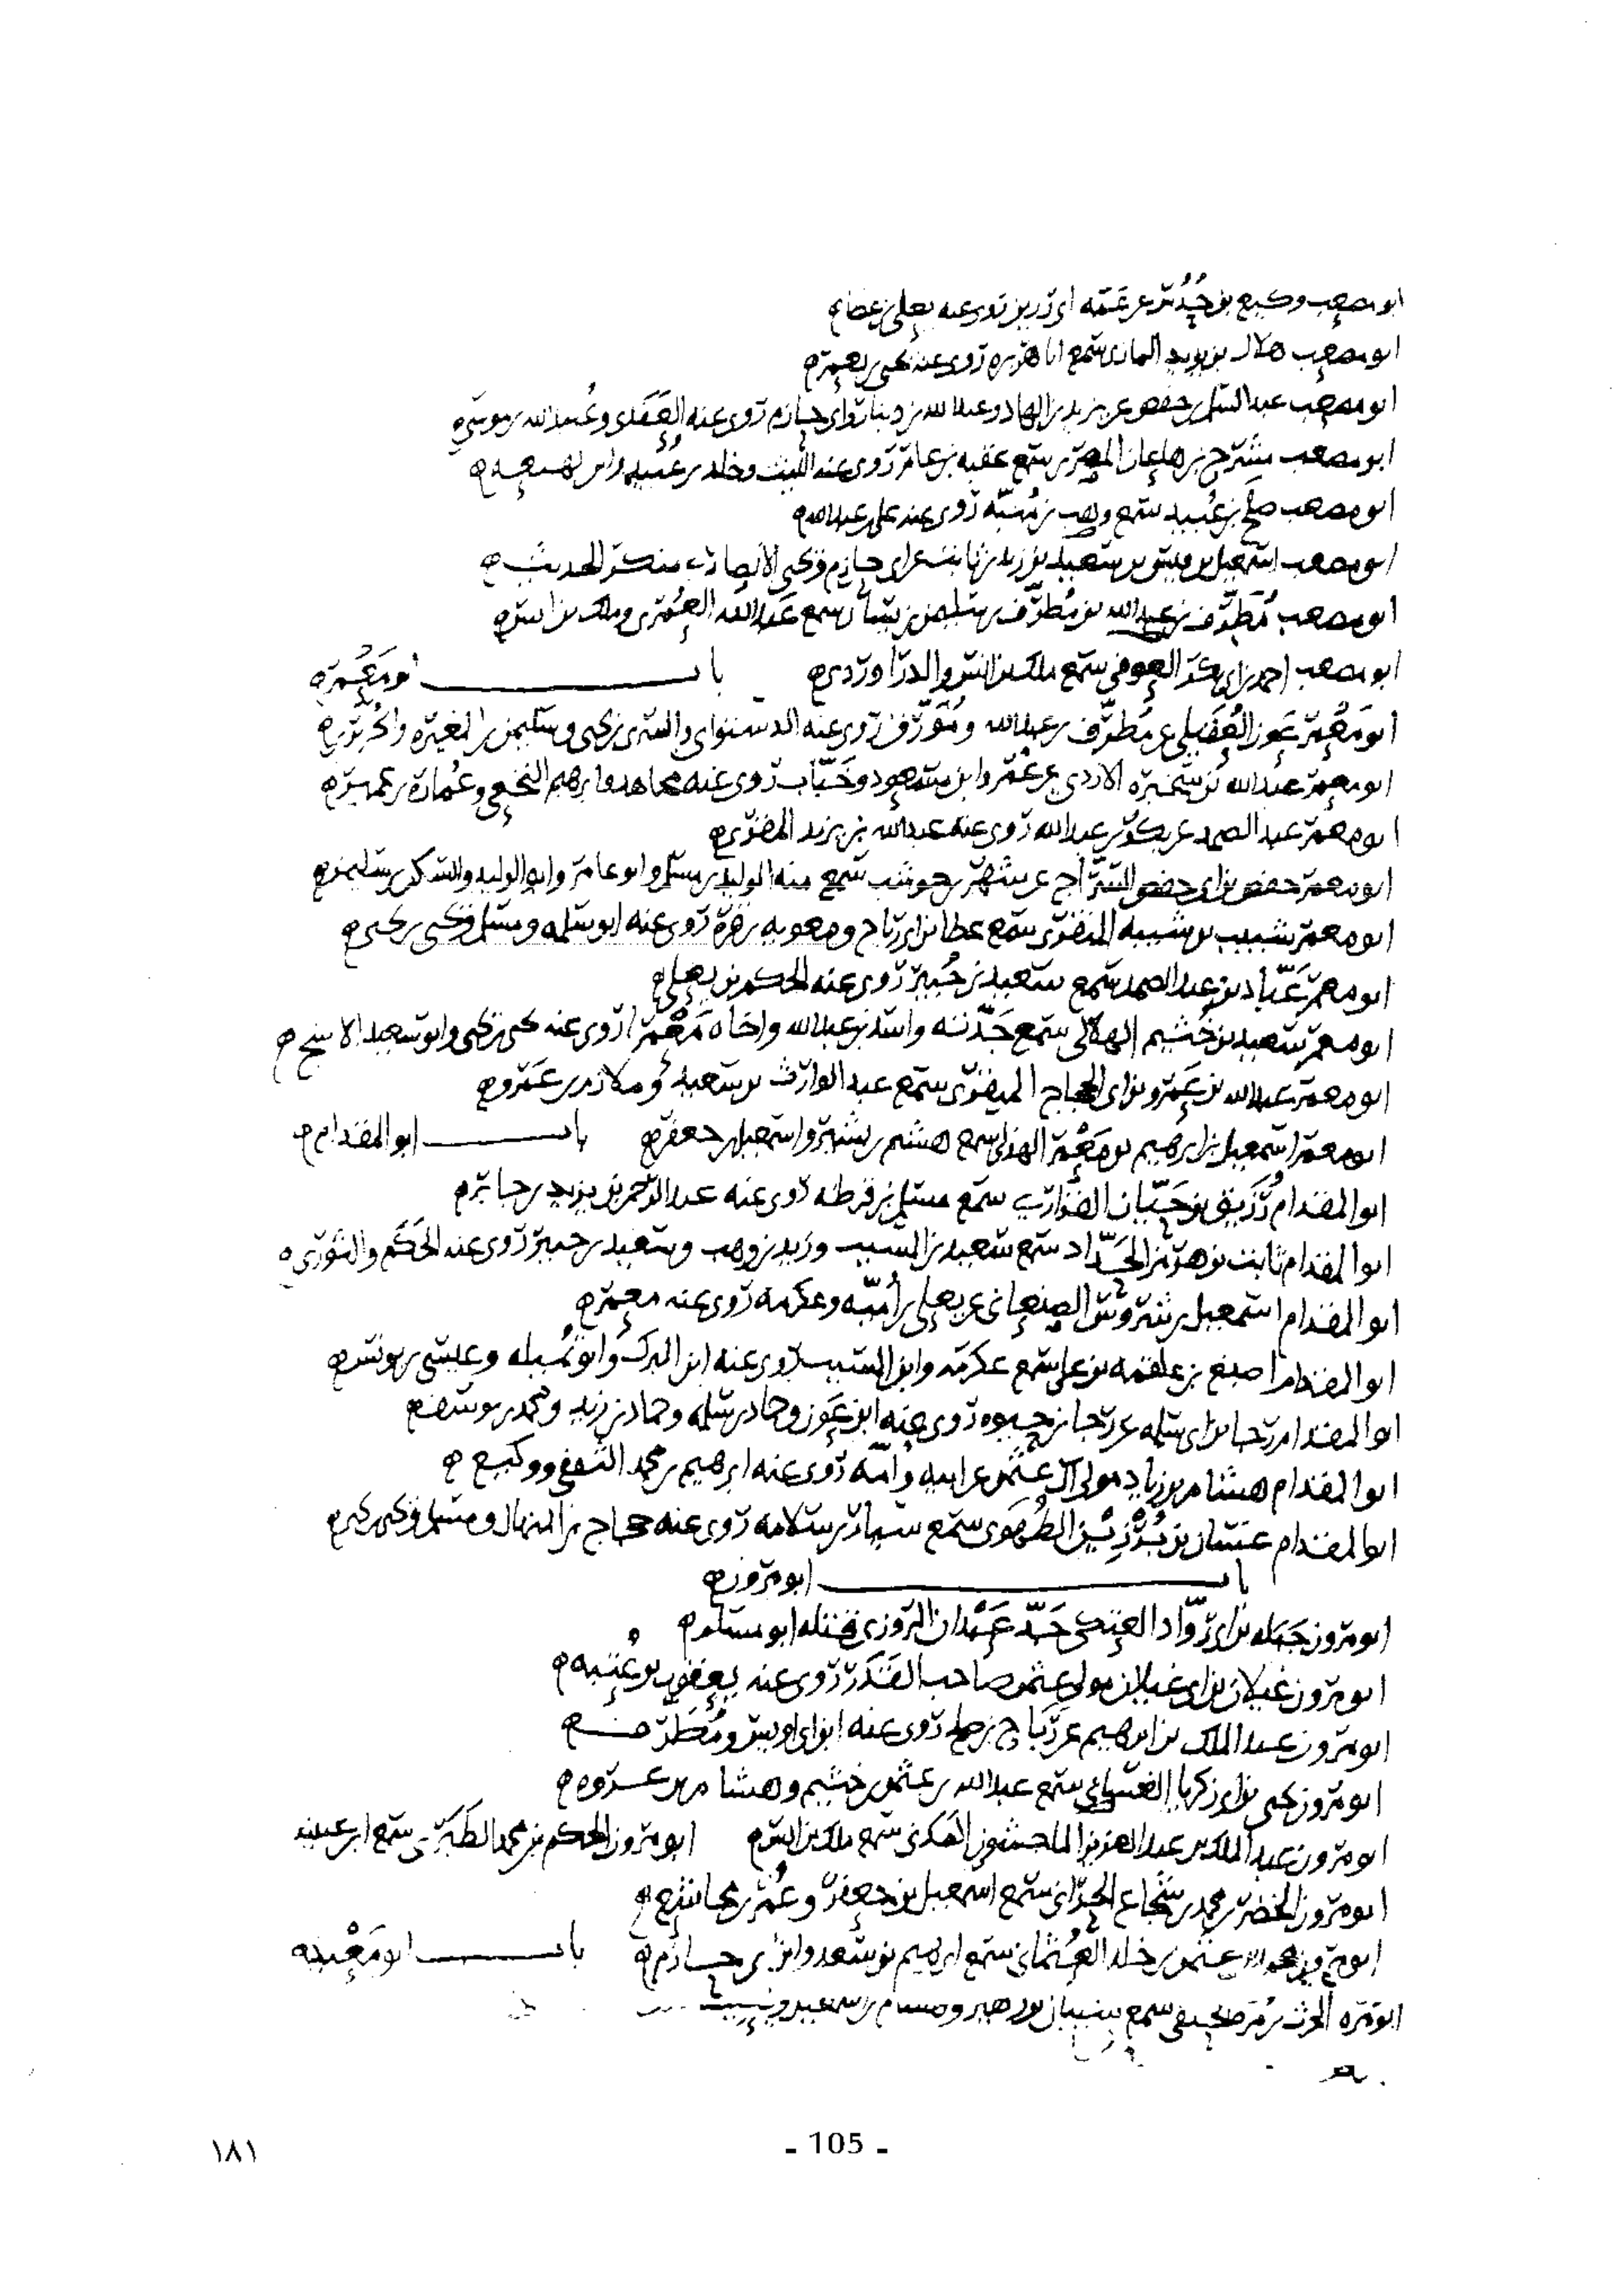 ابو مصعب وكيع بن حُدُس عن عمه ابى رزين روى عنه يعلى بن عطا
ابو مصعب هلال بن يزيد المازنى سمع ابا هريره روى عنه يحيى بن يعمر
ابو مصعب عبد السلم بن حفص عن يزيد بن الهاد وعبد الله بن دينار وابى حازم روى عنه العَقَدى وعُبيد الله بن موسى
ابو مصعب مشرح بن هاعان المصرى سمع عقبه بن عامر روى عنه الليث وخلد بن عُبيد وابن لهيعه
ابو مصعب صلح بن عُبيد سمع وهب بن مُنبّه روى عنه على بن عبد الله
ابو مصعب اسمعيل بن قيس بن سعيد بن زيد بن ثابت عن ابى حازم ويحيى الانصارى منكر الحديث
ابو مصعب مُطَرِّف بن عبد الله بن مُطرِّف بن سليمن بن يسار سمع عبد الله العُمَرى وملك بن انس
ابو مصعب احمد بن ابى بكر العوفى سمع ملك بن انس والدراوردى باب ابو مَعْمَر
ابو مَعْمَر عون العُقَيلى عن مُطرِّف بن عبد الله ومُوَرِّق روى عنه الدستوائى والسرى بن يحيى وسليمن بن المغيره
ابو معمر عبد الله بن سَخْبَره الازدى عن عُمَر وابن مسعود وخَبّاب روى عنه مجاهد وابرهيم النخعى وعُمارة بن عمير
ابو معمر عبد الصمد عن بكر بن عبد الله روى عنه عبد الله بن يزيد المقرى
ابو معمر حفص بن ابى حفص السرّاج عن شهر بن حوشب سمع منه الوليد بن مسلم وابو عامر وابو الوليد والسكن بن سليمن
ابو معمر شبيب بن شيبه المنقرى سمع عطا بن ابى رباح ومعويه بن قرة روى عنه ابو سلمه ومسلم ويحيى بن يحيى
ابو معمر عَبّاد بن عبد الصمد سمع سعيد بن جُبير روى عنه الحكم بن يعلى
ابو معمر سعيد بن خُثيم الهلالى سمع جَدّته واسد بن عبد الله واخاه مَعْمَرا روى عنه يحيى بن يحيى وابو سعيد الاشج
ابو معمر عبد الله بن عَمْرو بن ابى الحجاج المنقرى سمع عبد الوارث بن سعيد وملازم بن عَمْرو
ابو معمر اسمعيل بن ابرهيم بن مَعْمَر الهذلى سمع هشيم بن بشير واسمعيل بن جعفر باب ابو المقدام
ابو المقدام رُزَيق بن حَيّان الفزارى سمع مسلم بن قرظه روى عنه عبد الرحمن بن يزيد بن جابر
ابو المقدام ثابت بن هرمز الحَدّاد سمع سعيد بن المسيب وزيد بن وهب وسعيد بن جبير روى عنه الحَكَم والثورى
ابو المقدام اسمعيل بن شروس الصنعانى عن يعلى بن أُمَيّه وعكرمه روى عنه معمر
ابو المقدام اصبغ بن علقمه بن على سمع عكرمه وابن المسيب روى عنه ابن المبرك وابو تُمَيله وعيسى بن يونس
ابو المقدام رجا بن ابى سلمه عن رجا بن حيوه روى عنه ابن عون وحماد بن سلمه وحماد بن زيد ومحمد بن يوسف
ابو المقدام هشام بن زياد مولى آل عثمن عن ابيه وأُمّه روى عنه ابرهيم بن محمد الثقفى ووكيع
ابو المقدام غسان بن بُرْزين الطُهَوى سمع سيار بن سلامه روى عنه حجاج بن المنهال ومسلم ويحيى بن يحيى
باب ابو مرون
ابو مرون جَبَله بن ابى رَوّاد العتكى جَدّ عَبْدان المروزى قتله ابو مسلم
ابو مرون غيلان بن ابى غيلان مولى عثمن صاحب القَدَر روى عنه يعقوب بن عُتبه
ابو مرون عبد الملك بن ابرهيم عن رَباح بن صلح روى عنه ابن ابى اويس ومُطَرِّف
ابو مرون يحيى بن ابى زكريا الغسانى سمع عبد الله بن عثمن بن خثيم وهشام بن عروه
ابو مرون عبد الملك بن عبد العزيز الماجشون المدنى سمع ملك بن انس ابو مرون الحكم بن محمد الطبرى سمع ابن عيينه
ابو مرون الخضر بن محمد بن شجاع الحرّانى سمع اسمعيل بن جعفر وعُمَر بن مجاشع
ابو مرون محمد بن عثمن بن خلد العُثمانى سمع ابرهيم بن سعد وابن ابى حازم باب ابو مَعْبد
ابو مره الحرث بن مره الحنفى سمع
- 105 -
١٨١